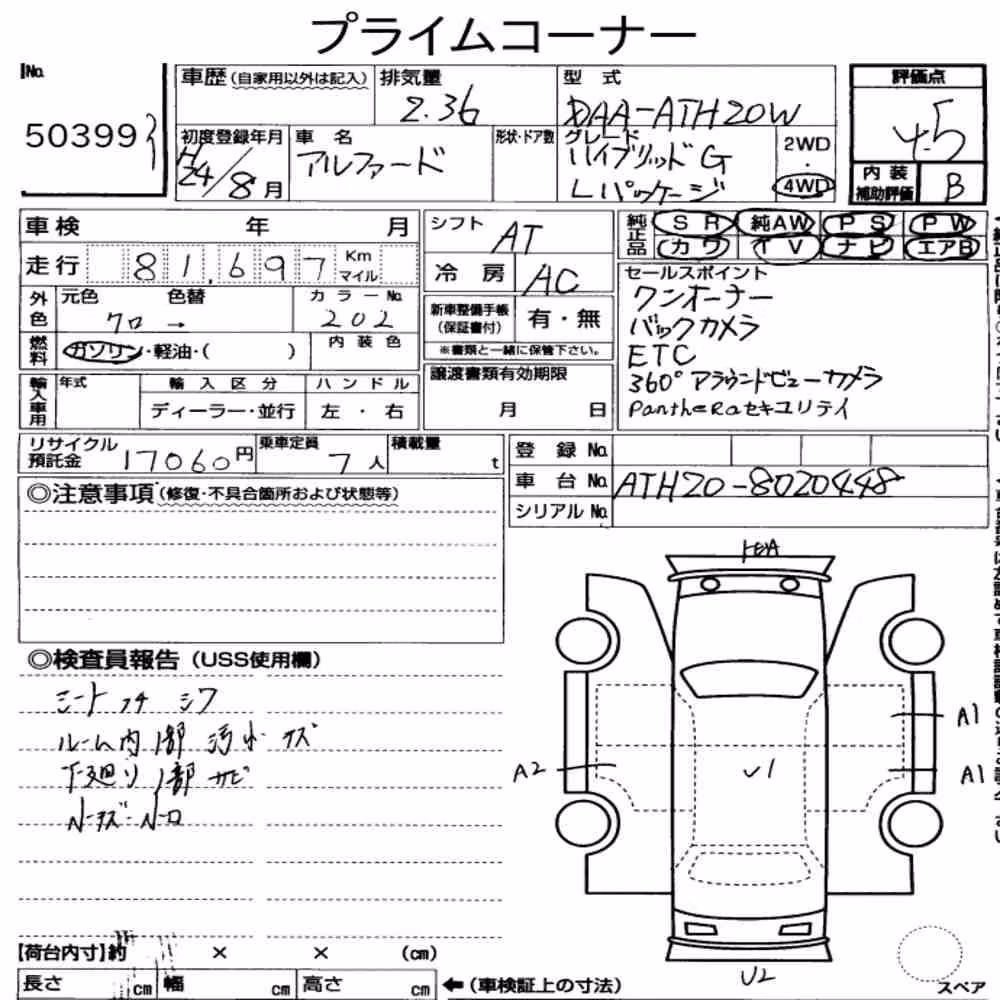 プライムコーナー
No.
50399
車歴 (自家用以外は記入) 排気量 型式
2.36 DAA-ATH20W
初度登録年月 車名 形状・ドア数 グレード
H24/8月 アルファード ハイブリッドG
Lパッケージ
2WD
・
4WD
評価点
4.5
内装
補助評価 B
車検 年 月
走行 81,697 Km
マイル
外色 元色 色替 カラーNo.
クロ → 202
燃料 ガソリン・軽油・( ) 内装色
輸入車用 年式 輸入区分 ハンドル
ディーラー・並行 左・右
シフト AT
冷房 AC
新車整備手帳
(保証書付) 有・無
※書類と一緒に保管下さい。
譲渡書類有効期限
月 日
純正品 SR 純AW PS PW
カワ TV ナビ エアB
セールスポイント
ワンオーナー
バックカメラ
ETC
360°アラウンドビューカメラ
Pantheraセキュリテイ
リサイクル
預託金 17060円 乗車定員 7人 積載量 t
登録No.
車台No. ATH20-8020448
シリアルNo.
◎注意事項 (修復・不具合箇所および状態等)
◎検査員報告 (USS使用欄)
シート コケ シワ
ルーム内1部 汚れ キズ
下廻り1部 サビ
A1
A2
A1
U1
U2
【荷台内寸】約 × × (cm)
長さ cm 幅 cm 高さ cm ←(車検証上の寸法)
スペア